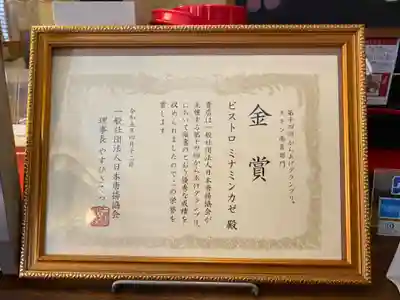 第十四回からあげグランプリ®
チキン南蛮部門
金賞
ビストロ ミナミンカゼ 殿
貴店は一般社団法人日本唐揚協会が
主催する第十四回からあげグランプリ®
において厳正のもと優秀な成績を
収められましたので、この栄誉を
賞します
令和五年四月十二日
一般社団法人日本唐揚協会
理事長 やすひさてっぺい